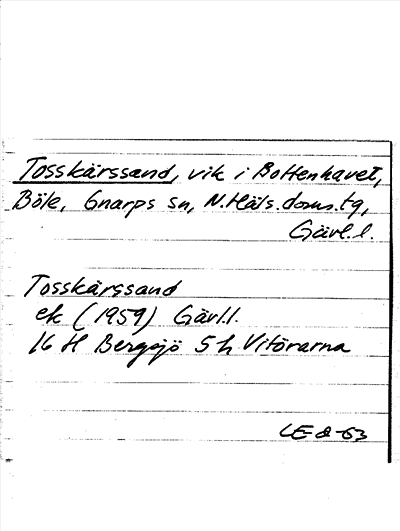 Tosskärssand, vik i Bottenhavet,
Böle, Gnarps sn, N.Häls.doms.tg,
Gävl.l.
Tosskärssand
ek (1959) Gävl.l.
16 H Bergsjö 5 h Vitörarna